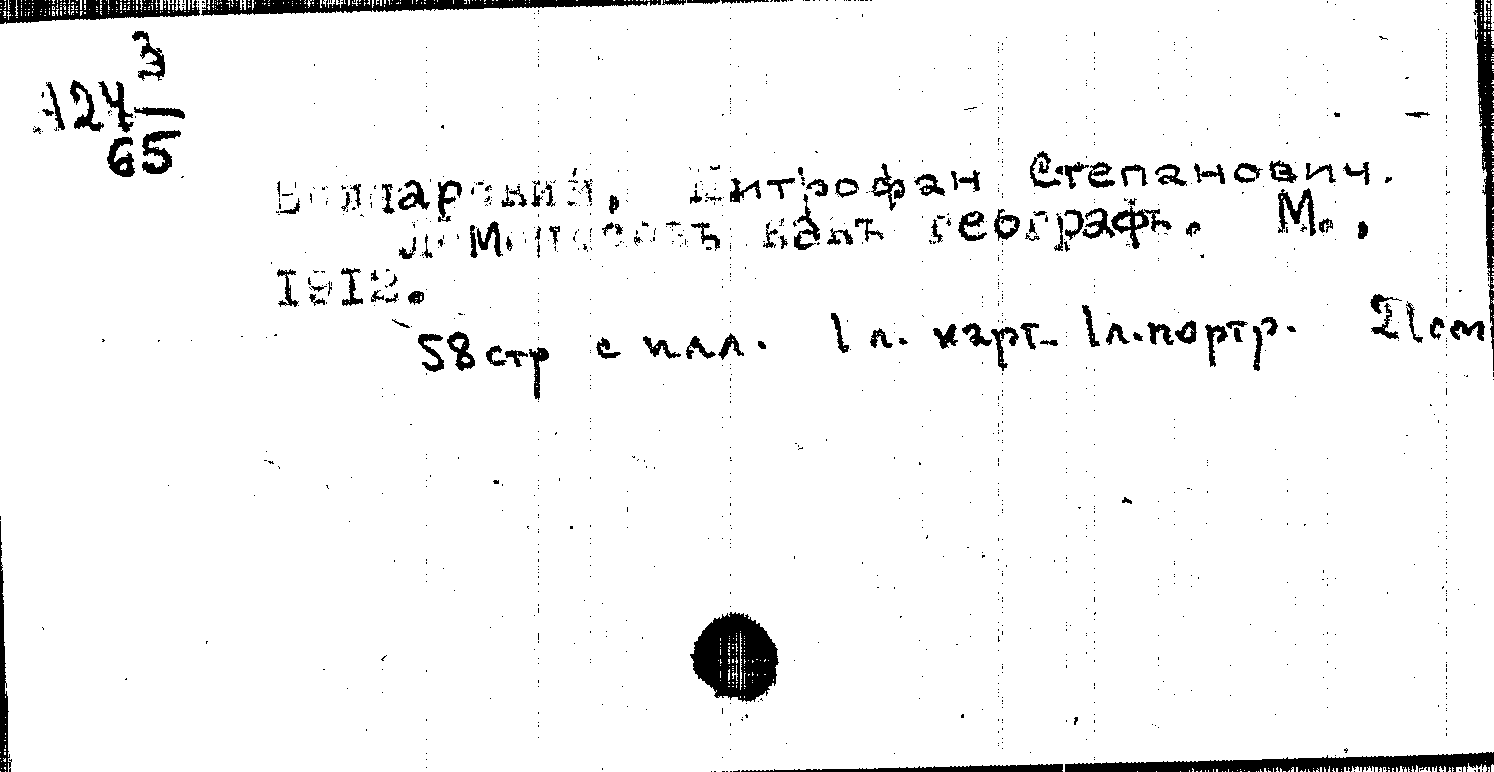 А24 3
65
Боднарский, Митрофан Степанович.
Ломоносовъ какъ географъ. М.,
1912.
58 стр с илл. 1 л. карт. 1 л. портр. 21 см